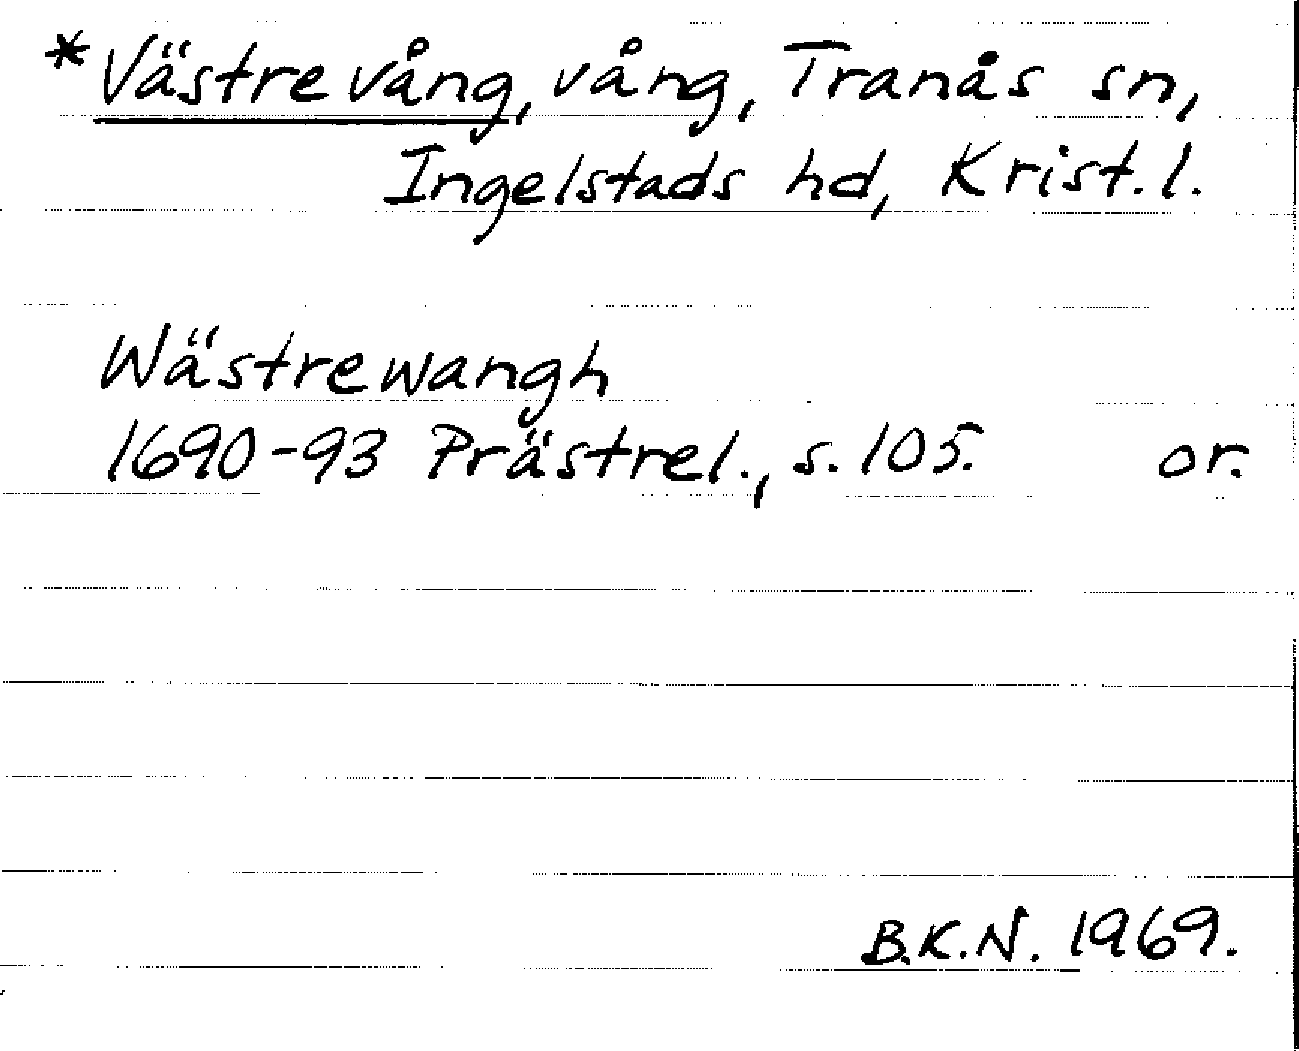 *Västrevång, vång, Tranås sn,
Ingelstads hd, Krist.l.
Wästrewangh
1690-93 Prästrel., s. 105. or.
B.K.N. 1969.